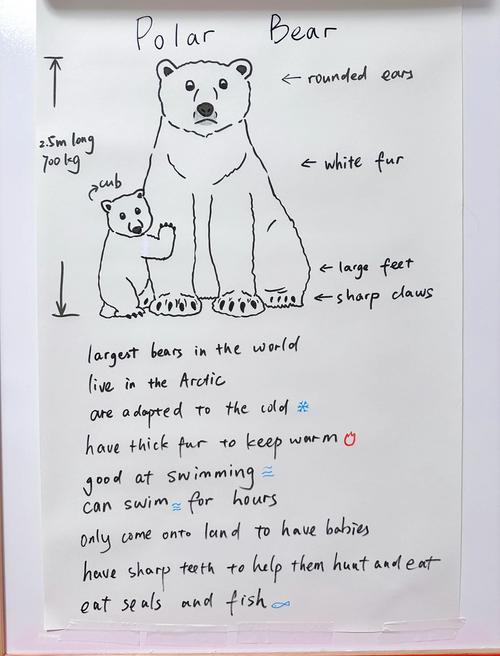 Polar Bear
← rounded ears
2.5m long
700 kg
← white fur
cub
← large feet
← sharp claws
largest bears in the world
live in the Arctic
are adapted to the cold
have thick fur to keep warm
good at swimming
can swim for hours
only come onto land to have babies
have sharp teeth to help them hunt and eat
eat seals and fish